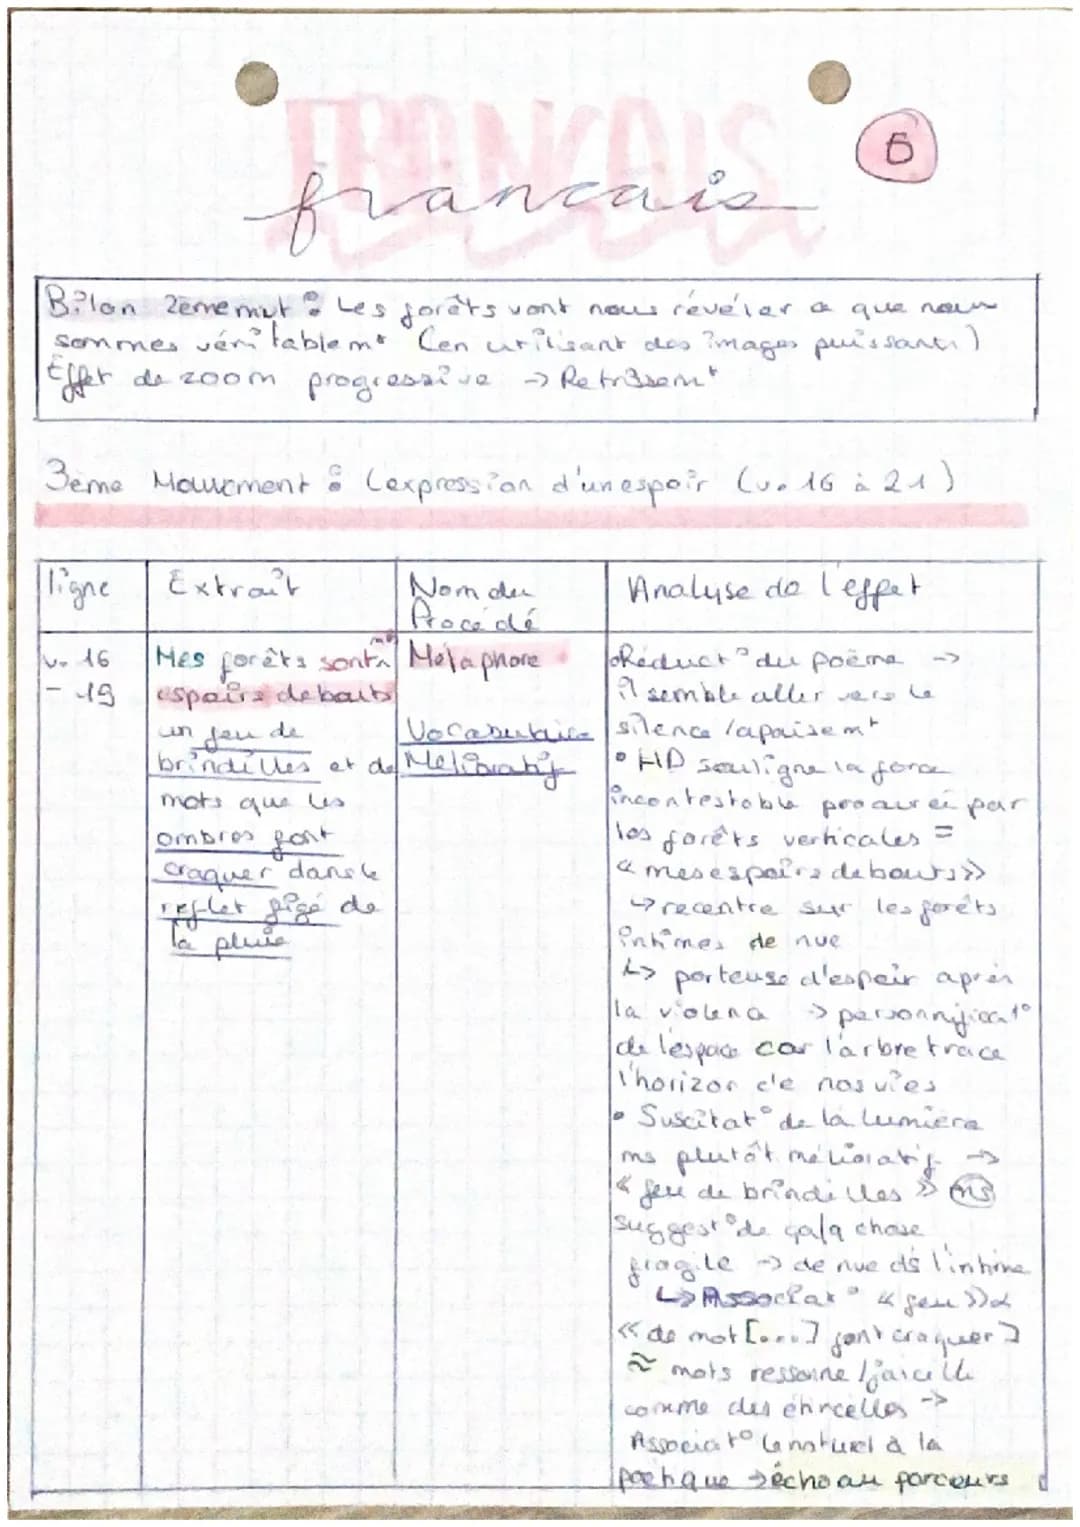 FRANCAIS
francais
6
Bilan 2ememvt : Les forêts vont nous révéler a que nous
sommes véritablemt (en utilisant des images puissants)
Effet de zoom progressive -> Retrissemt
3ème Mouvement : L'expression d'un espoir (v. 16 à 21)
ligne
Extrait
Nom du
Procédé
Analyse de l'effet
v. 16
- 19
Mes forêts sont mes
espoirs debouts
un feu de
brindilles et de
mots que les
ombres font
craquer dans le
reflet figé de
la pluie
Métaphore
Vocabulaire
Mélioratif
• Réduct° du poème ->
il semble aller vers le
silence / apaisemt
• HD souligne la force
incontestable procurée par
les forêts verticales =
« mes espoirs debouts »
↳ recentre sur les forêts
intimes de nue
↳ porteuse d'espoir après
la violence -> personnificat°
de l'espace car l'arbre trace
l'horizon de nos vies
• Suscitat° de la lumière
ms plutôt mélioratif ->
« feu de brindilles » ms
suggest° de qq chose
fragile -> de nue ds l'intime
↳ Associat° « feu » &
« de mot [...] font craquer »
≈ mots ressoine / jaicelle
comme des étincelles ->
Associat° le naturel à la
poétique -> écho au parcours